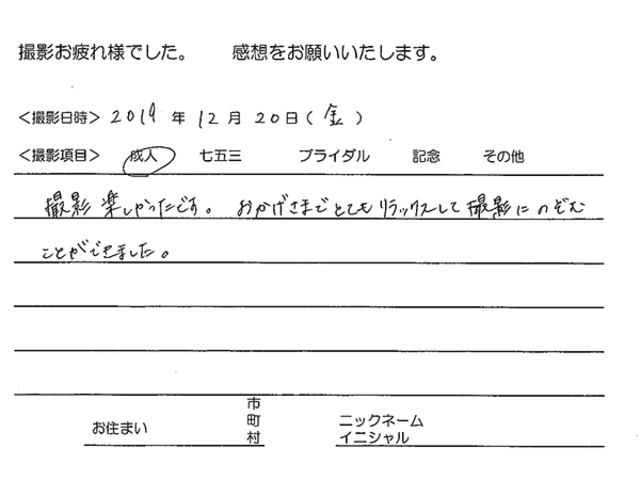 撮影お疲れ様でした。 感想をお願いいたします。
＜撮影日時＞ 2019 年 12月 20日（金）
＜撮影項目＞ 成人 七五三 ブライダル 記念 その他
撮影 楽しかったです。 おかげさまでとてもリラックスして撮影にのぞむ
ことができました。
市
お住まい 町 ニックネーム
村 イニシャル